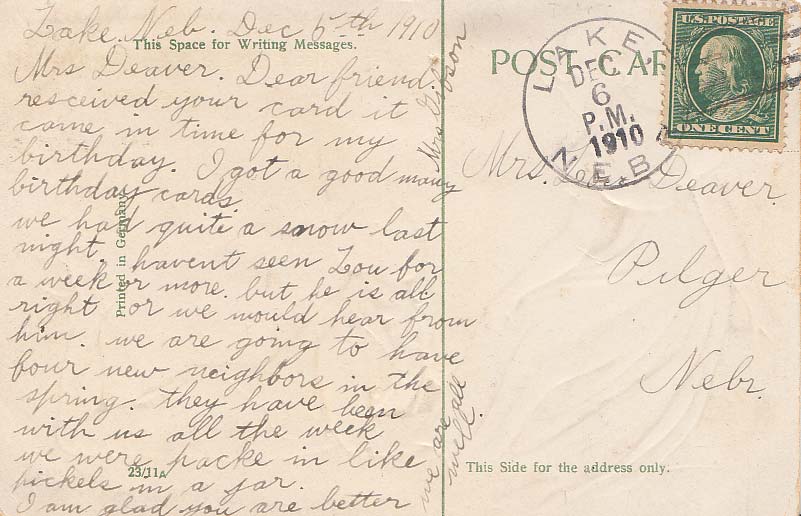 Lake. Neb. Dec 5th 1910
This Space for Writing Messages.
Mrs Deaver. Dear friend.
resceived your card it
came in time for my
birthday. I got a good many
birthday cards
we had quite a snow last
night. havent seen Lou for
a week or more. but he is all
right or we would hear from
him. we are going to have
four new neighbors in the
spring. they have been
with us all the week
we were packe in like
pickels in a jar.
I am glad you are better
we are all
well.
Mrs Gibson
Printed in Germany
23/11A
POST CAR
LAKE,
DEC
6
P.M.
1910
NEB
U.S. POSTAGE
ONE CENT
Mrs. Deaver.
Pilger
Nebr.
This Side for the address only.